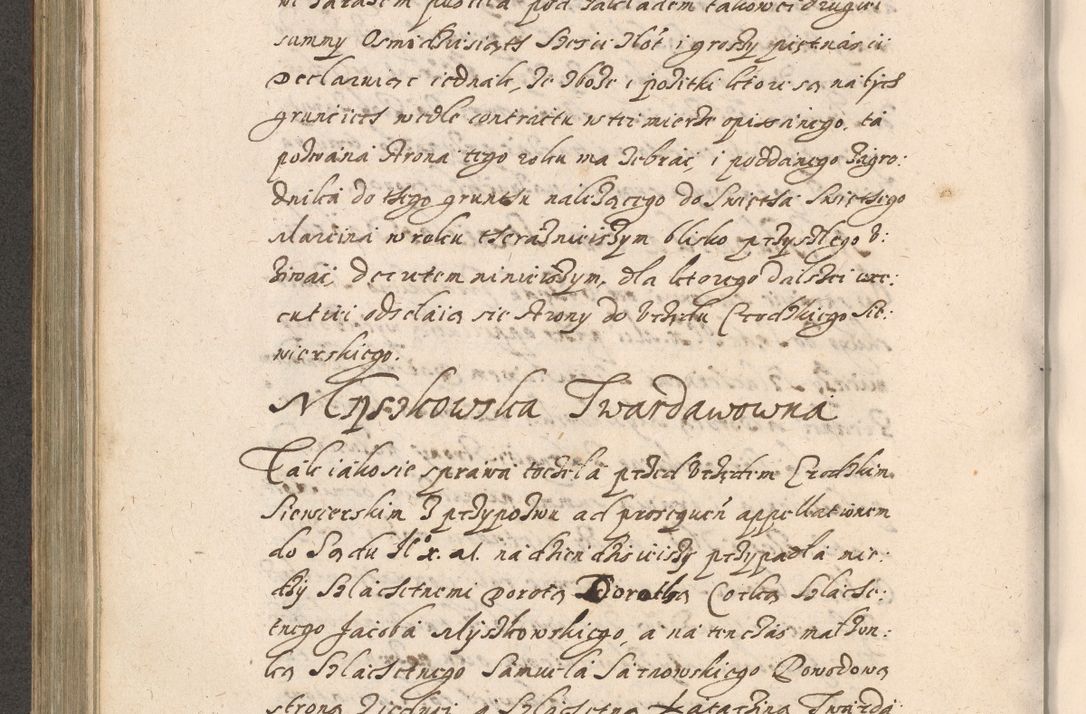 ni zarazem publica pod zakładem takowei drugiei
summy Osmidziesiąth Szesci Złot i groszy piętnasci
Declaruiąc iednak, że zboże i pożitki ktore są na tych
grunciech wedle contractu w tei mierze opissanego, ta
pozwana strona tego roku ma zebrać, i poddanego zagro:
dnika do thego gruntu należącego do Swięta Swiętego
Marcina w roku theraznieiszym blisko przyszłego v:
żiwać, decretem ninieiszym, dla ktorego dalszei exe:
cutiei odsełaią się strony do Vrzędu Grodzkiego Sie:
wierskiego.
Myszkowska Twardawowna
Tak iako się sprawa toczeła przed Vrzędem Grodzkim
Siewierskim z przypozwu ad prosequen appellationem
do Sądu Jlᵒ x. al. na dzien dzisieiszy przypadła mie:
dzy Szlachetnemi Dorotą Dorotha Corką Szlache:
tnego Jacoba Myszkowskiego, a na tenczas małżon:
ką Szlachetnego Samuela Sarnowskiego Powodową
stroną z iednei, a Szlachetną Katarzyną Twarda